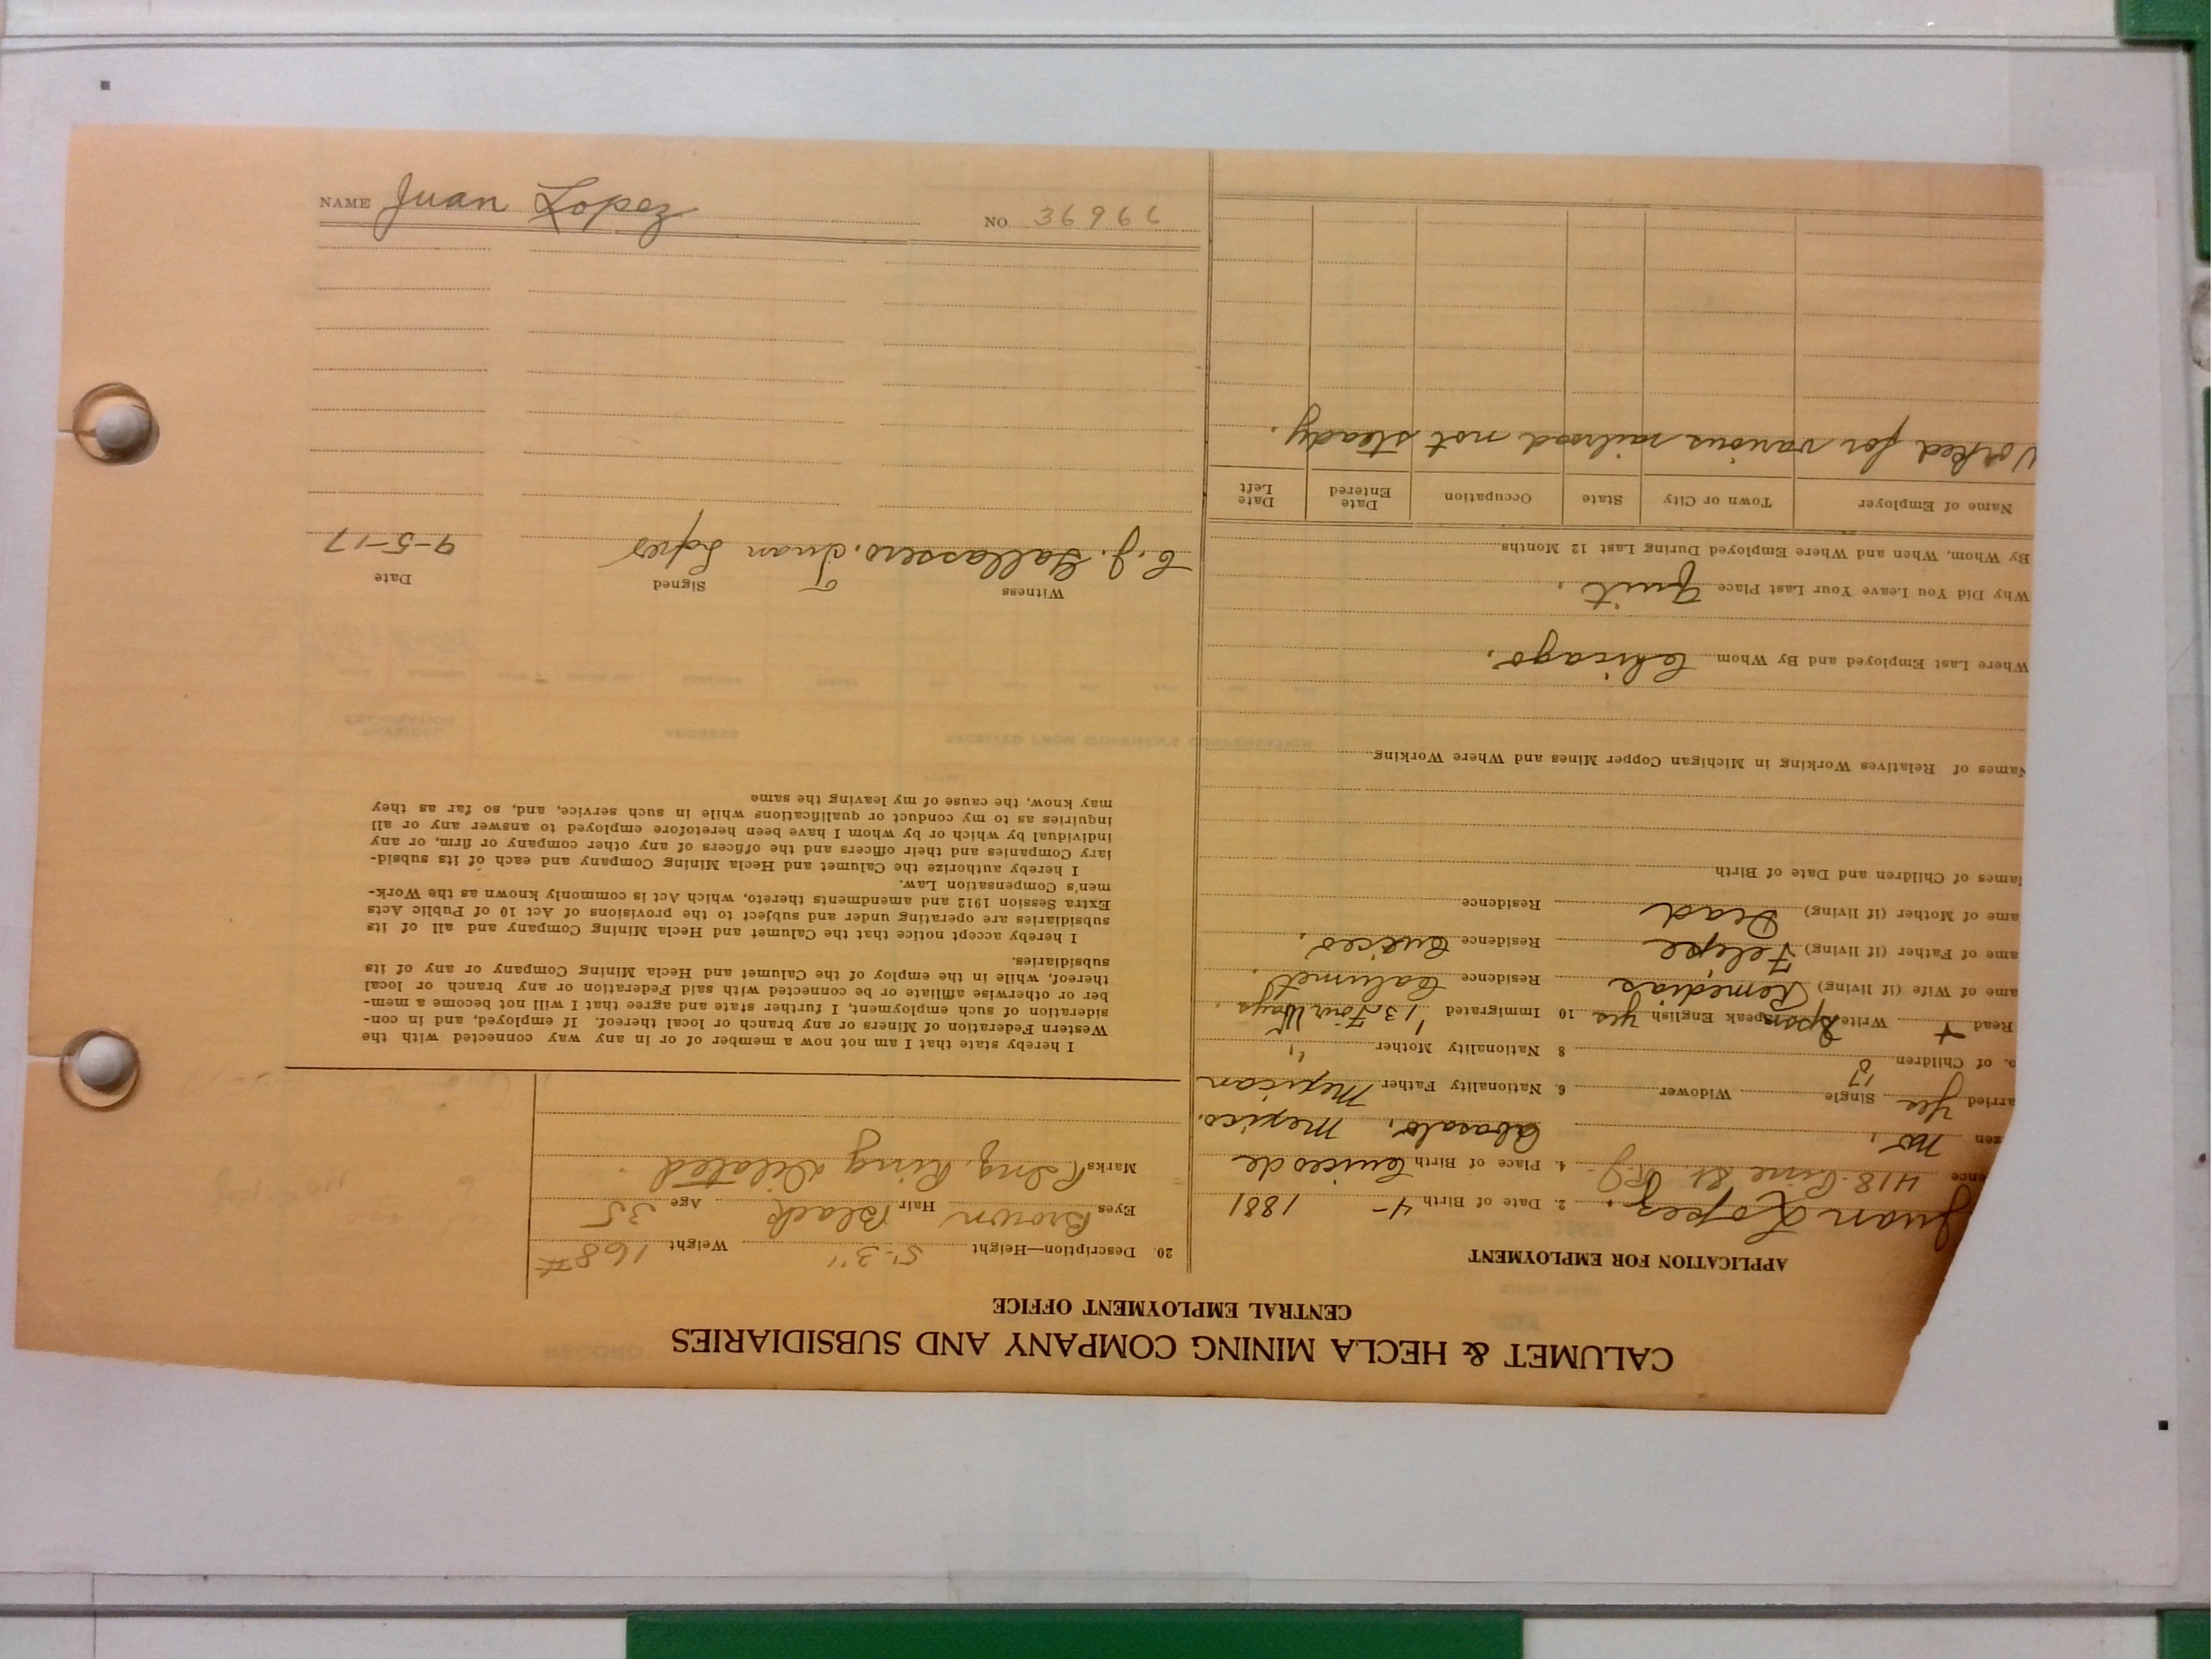 CALUMET & HECLA MINING COMPANY AND SUBSIDIARIES
CENTRAL EMPLOYMENT OFFICE
APPLICATION FOR EMPLOYMENT
Juan Lopez. 2. Date of Birth 4- 1881
ence 418 Pine St. 4. Place of Birth
zen no. Mexico.
arried yes Single Widower 6. Nationality Father Mexican
o. of Children 0 8 Nationality Mother "
Read + Write Span Speak English yes 10 Immigrated '13
ame of Wife (if living) Remedias Residence Calumet.
ame of Father (if living) Felipe Residence
ame of Mother (if living) Dead Residence
Names of Children and Date of Birth
Names of Relatives Working in Michigan Copper Mines and Where Working
Where Last Employed and By Whom Chicago.
Why Did You Leave Your Last Place Quit.
By Whom, When and Where Employed During Last 12 Months
Name of Employer Town or City State Occupation Date Entered Date Left
Worked for various railroad not steady.
20. Description—Height 5'-3" Weight 168#
Eyes Brown Hair Black Age 35
Marks Ing. Ring Dilated
I hereby state that I am not now a member of or in any way connected with the
Western Federation of Miners or any branch or local thereof. If employed, and in con-
sideration of such employment, I further state and agree that I will not become a mem-
ber or otherwise affiliate or be connected with said Federation or any branch or local
thereof, while in the employ of the Calumet and Hecla Mining Company or any of its
subsidiaries.
I hereby accept notice that the Calumet and Hecla Mining Company and all of its
subsidiaries are operating under and subject to the provisions of Act 10 of Public Acts
Extra Session 1912 and amendments thereto, which Act is commonly known as the Work-
men's Compensation Law.
I hereby authorize the Calumet and Hecla Mining Company and each of its subsid-
iary Companies and their officers and the officers of any other company or firm, or any
individual by which or by whom I have been heretofore employed to answer any or all
inquiries as to my conduct or qualifications while in such service, and, so far as they
may know, the cause of my leaving the same
Witness Signed Date
Juan Lopes 9-5-17
NAME Juan Lopez NO. 36966